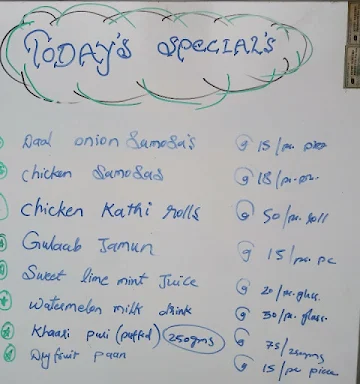 TODAY'S SPECIAL'S
Daal onion Samosa's @ 15/pr. pice
chicken Samosas @ 18/pr. pce.
Chicken Kathi rolls @ 50/pr. roll
Gulaab Jamun @ 15/pr. pc
Sweet lime mint Juice @ 20/pr. glass.
Watermelon milk drink @ 30/pr. glass.
Khaari puri (puffed) 250gms @ 75/250gms
Dry fruit paan @ 15/pr piece